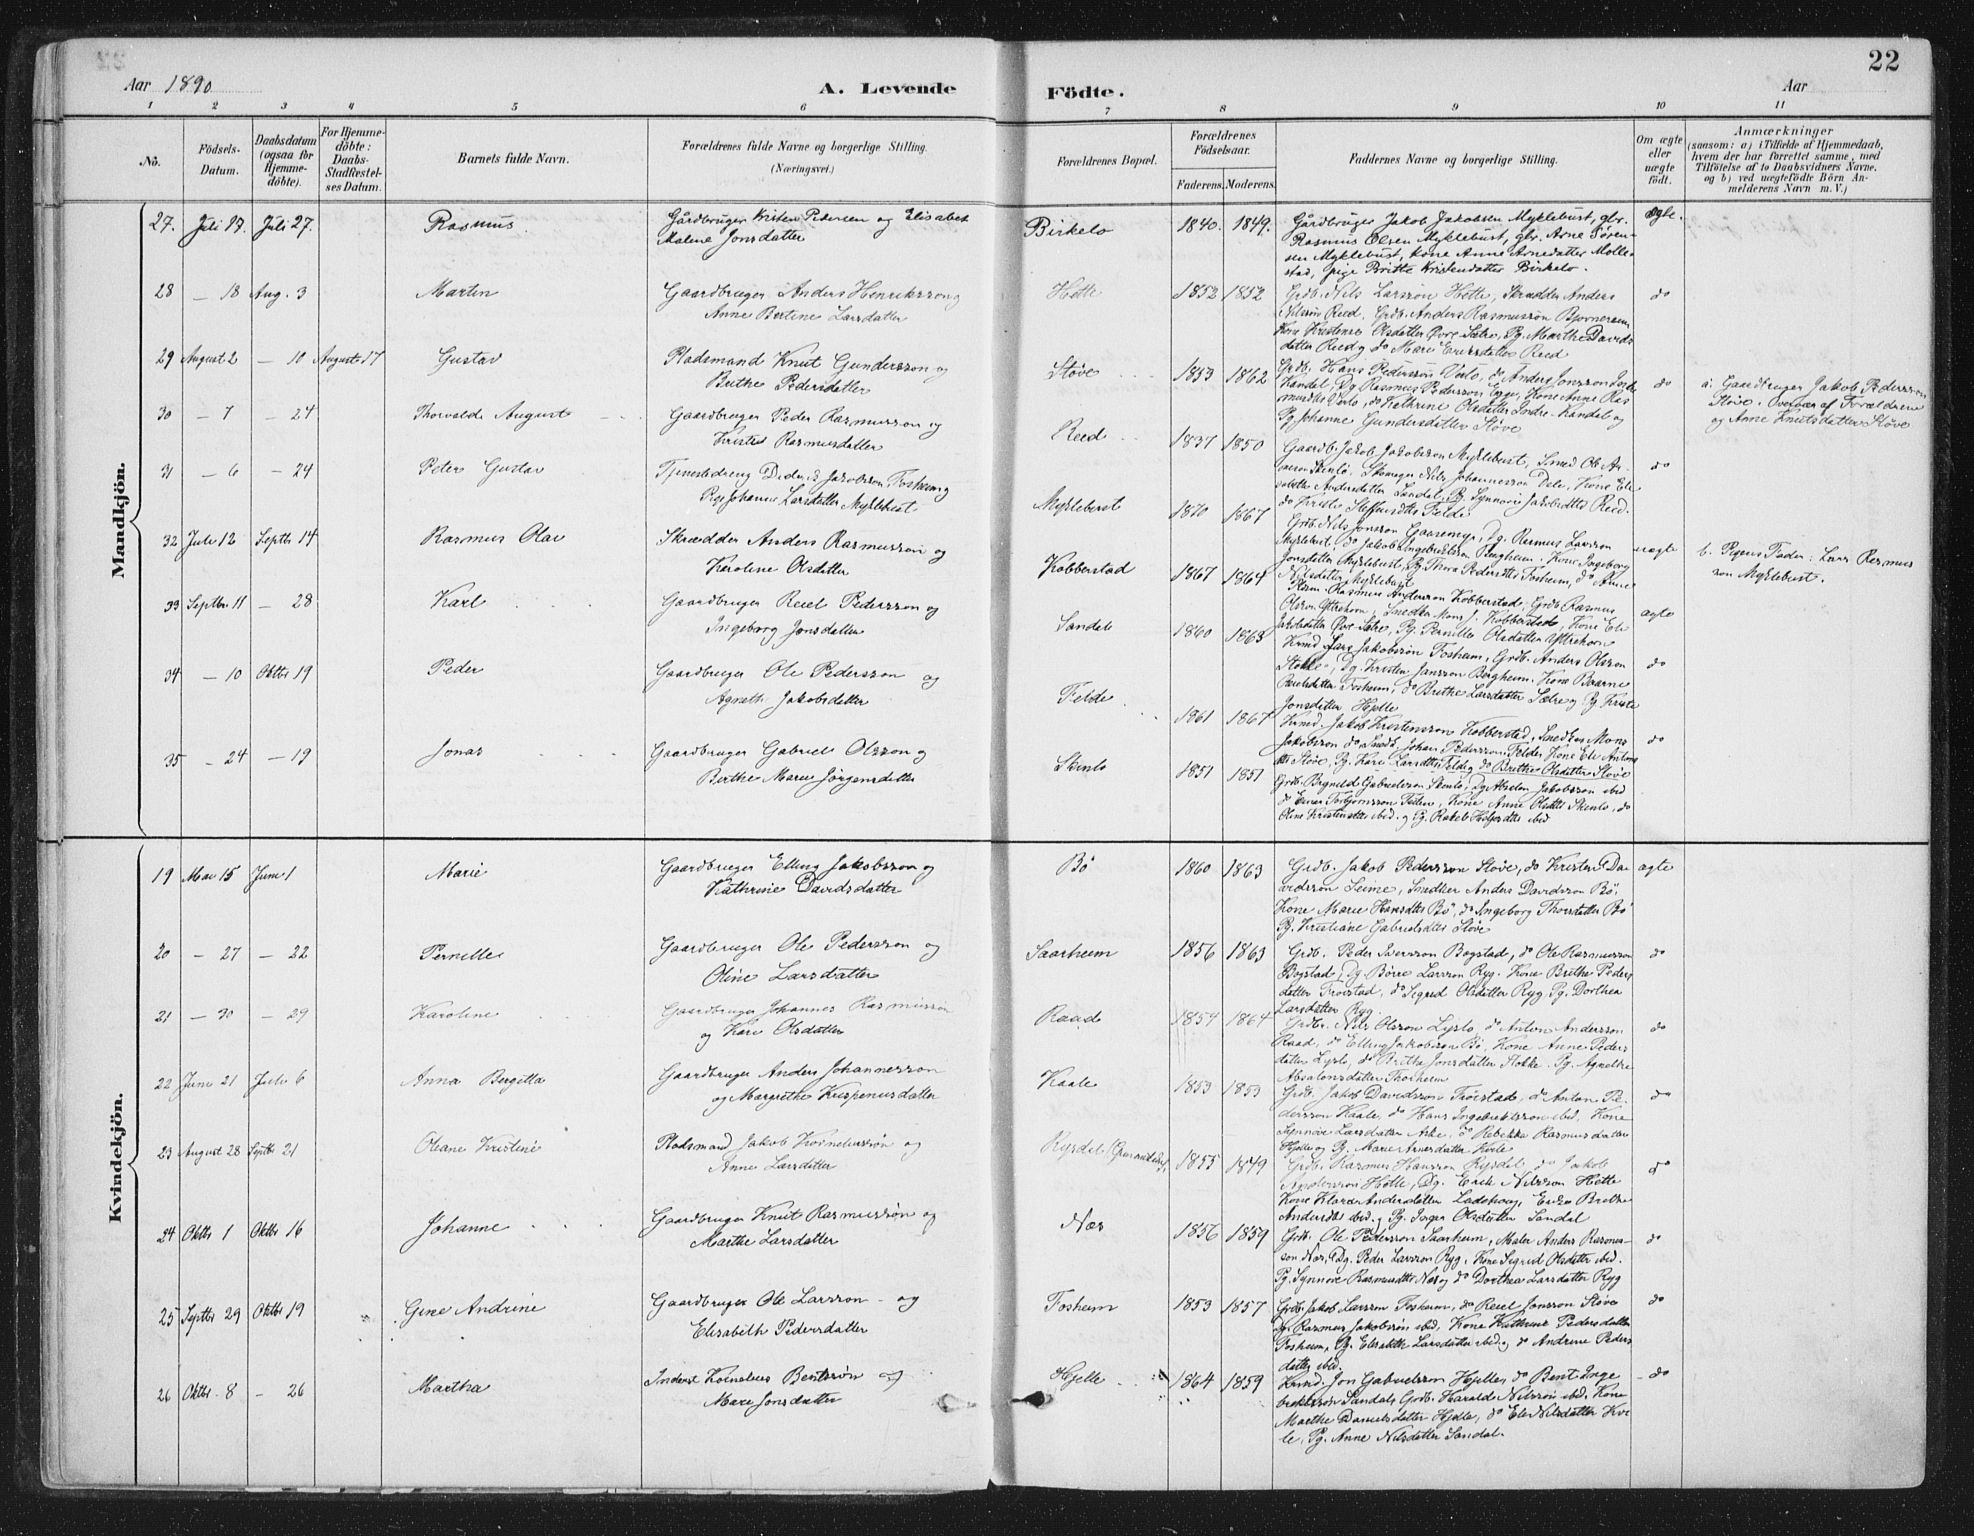 22
Aar 1890
A. Levende
Födte.
Aar
1 2 3 4 5 6 7 8 9 10 11
No.
Födsels-
Datum.
Daabsdatum
(ogsaa for
Hjemme-
döbte).
For Hjemme-
döbte:
Daabs-
Stadfæstel-
ses Datum.
Barnets fulde Navn.
Forældrenes fulde Navne og borgerlige Stilling.
(Næringsvei.)
Forældrenes Bopæl.
Forældrenes
Födselsaar.
Faderens. Moderens.
Faddernes Navne og borgerlige Stilling.
Om ægte
eller
uægte
födt.
Anmærkninger
(saasom: a) i Tilfælde af Hjemmedaab,
hvem der har forrettet samme, med
Tilföielse af to Daabsvidners Navne,
og b) ved uægtefödte Börn An-
melderens Navn m. V.)
Mandkjön.
27. Juli 17. Juli 27. Rasmus. Gårdbruger Kristen Pedersen og Elisabet
Malene Jonsdatter
Birkelo 1840. 1849.
Gårdbruger Jakob Jakobsen Myklebust, gbr.
Rasmus Olsen Myklebust, gbr. Arne Søren-
sen Myklebust, kone Anne Arnedatter Molle-
stad, pige Britte Kristendatter Birkelo.
ægte.
28 — 18 Aug. 3 Martin Gaardbruger Anders Henrikssøn og
Anne Bertine Larsdatter
Hette 1852 1852
Grdb. Nils Larssøn Hette, Skrædder Anders
Nilssøn Reed, Grdb. Anders Rasmussøn Bjørnereim
Kone Kristense Olsdatter Øvre Sætre, Pg. Marthe Davids
datter Reed og do Marie Eriksdatter Reed
do
29 August 2 — 10 August 17 Gustav Pladsmand Knut Gunderssøn og
Brithe Pedersdatter
Støve 1853 1862
Grdb. Hans Pederssøn Verlo, do Anders Jonssøn Indre
Kandal, Dg Rasmus Pederssøn Egge, Kone Anne Ras
musdtr Verlo, do Kathrine Olsdatter Indre Kandal og
Pg. Johanne Gundersdatter Støve
do
a. Gaardbruger Jakob Pederssøn
Støve. Overvær af Forældrene
og Anne Knutsdatter Støve
30 — 7 — 24 Thorvald August Gaardbruger Peder Rasmussøn og
Kristi Rasmusdatter
Reed 1837 1850
Gaardb. Jakob Jakobssøn Myklebust, Smed Ole An-
derssøn Skinlo, Skomager Nils Johannessøn Dale, Kone Eli-
sabeth Andersdatter Sandal, Pg. Synnøve Jakobsdtr Reed
do Kristi Steffensdtr Felde
do
31 — 6 — 24 Peter Gustav Tjenestedreng Didrik Jakobssøn Fosheim og
Pige Johanne Larsdatter Myklebust
Myklebust 1870 1867
Grdb. Nils Jonssøn Gaasemyr, Dg. Rasmus Larssøn
Myklebust, do Jakob Ingebrigtssøn Bergheim, Kone Ingeborg
Jonsdatter Myklebust, Pg. Thora Pedersdtr Fosheim, do Anne
Nilsdatter Myklebust
uægte
b. Pigens Fader: Lars Rasmus
søn Myklebust.
32 Juli 12 Septbr 14 Rasmus Olai Skrædder Anders Rasmussøn og
Karoline Olsdatter
Kobberstad 1867 1864
Rasmus Anderssøn Kobberstad, Grdb. Rasmus
Olssøn Ytrehorn, Snedker Mons J. Kobberstad, Kone Eli
Jakobsdatter Øvre Sætre, Pg. Pernille Olsdatter Ytrehorn
ægte
33 Septbr 11 — 28 Karl Gaardbruger Reiel Pederssøn og
Ingeborg Jonsdatter
Sandal 1860 1863
Kmd Lars Jakobssøn Fosheim, Grdb. Anders Olssøn
Stokke, Dg. Kristen Janssøn Bergheim, Kone Baarne
Reielsdatter Fosheim, do Brithe Larsdatter Sætre og Pg Kristi
Jonsdatter Hjelle
do
34 — 10 Oktbr 19 Peder Gaardbruger Ole Pederssøn og
Agneth Jakobsdatter
Felde 1861 1867
Kmd. Jakob Kristenssøn Kobberstad, Snedker Mons
Jakobssøn do, Snedk. Johan Pederssøn Felde, Kone Eli Antons
dtr Støve, Pg. Kari Larsdtr Felde og do Brithe Olsdatter Støve
do
35 — 24 — 19 Jonas Gaardbruger Gabriel Olssøn og
Berthe Marie Jørgensdatter
Skinlo 1851 1851
Grdb. Brynild Gabrielssøn Skinlo, Dg Absalon Jakobssøn ibid
do Einar Torbjørnssøn Felde, Kone Anne Olsdtr Skinlo, do
Oline Kristensdtr ibid. og Pg. Rakel Halfordtr ibid
Kvindekjön.
19 Mai 15 Juni 1 Marie Gaardbruger Elling Jakobssøn og
Kathrine Davidsdatter
Bø 1860 1863
Grdb. Jakob Pederssøn Støve, do Kristen Da-
vidssøn Seime, Snedker Anders Davidssøn Bø,
Kone Marie Hansdtr Bø, do Ingeborg Thorsdatter Bø
Pg. Kristiane Gabrielsdtr Støve
ægte
20 — 27 — 22 Pernille Gaardbruger Ole Pederssøn og
Oline Larsdatter
Saarheim 1856 1863
Grdb. Peder Iverssøn Bogstad, do Ole Rasmussøn
Bogstad, Dg. Børre Larssøn Ryg, Kone Brithe Peders
datter Troistad, do Sigrid Olsdatter Ryg, Pg. Dorthea
Larsdatter Ryg.
do
21 — 30 — 29 Karoline Gaardbruger Johannes Rasmussøn
og Kari Olsdatter
Raad 1854 1864
Grdbr. Nils Olssøn Lyslo, do Anton Anderssøn
Raad, do Elling Jakobssøn Bø, Kone Anne Peders
datter Lyslo, do Britha Jonsdatter Stokke, Pg. Agnethe
Absalonsdatter Thorheim
do
22 Juni 21 Juli 6 Anna Bergitta Gaardbruger Anders Johannessøn
og Margrethe Krispinusdatter
Kaale 1853 1853
Grdb. Jakob Davidssøn Troistad, do Anton Pe-
derssøn Kaale, do Hans Ingebrektssøn ibid, Kone
Synnøve Larsdatter Aske, do Rebekka Rasmusdatter
Hjelle og Pg. Marie Arnesdatter Kvile
do
23 August 28 Septbr 21 Oleane Kristine Pladsmand Jakob Korneliussøn og
Anne Larsdatter
Rysdal 1855 1849
Grdb. Rasmus Hanssøn Rysdal, do Jakob
Anderssøn Hette, Dg. Erik Nilssøn Hette
Kone Klara Andersdatter Ladehoug, Enke Brithe
Andersdtr ibid. og Pg. Inger Olsdatter Sandal
do
24 Oktbr 1 Oktbr 16 Johanne Gaardbruger Knut Rasmussøn og
Marthe Larsdatter
Nes 1856 1859
Grdb. Ole Pederssøn Saarheim, Maler Anders Rasmus-
søn Nes, Dg. Peder Larssøn Ryg, Kone Sigrid Olsdatter ibid.
Pg. Synnøve Rasmusdtr Nes og do Dorthea Larsdatter Ryg
do
25 Septbr 29 Oktbr 19 Gine Andrine Gaardbruger Ole Larssøn og
Elisabeth Pedersdatter
Fosheim 1853 1857
Grdb. Jakob Larssøn Fosheim, do Reiel Jonssøn Støve
Dg. Rasmus Jakobssøn ibid, Kone Kathrine Pedersdatter
Fosheim, Pg. Elisabeth Larsdatter ibid og do Andrine Peders
datter ibid.
do
26 Oktbr 8 — 26 Martha Inderst Kornelius Bentssøn og
Mari Jonsdatter
Hjelle 1864 1859
Kmd. Jon Gabrielssøn Hjelle, do Bent Inge
brektssøn Sandal, Grdb. Harald Nilssøn ibid. Kone
Marthe Danielsdatter Hjelle, do Eli Nilsdatter Kvi-
le, Pg. Anne Nilsdatter Sandal.
do